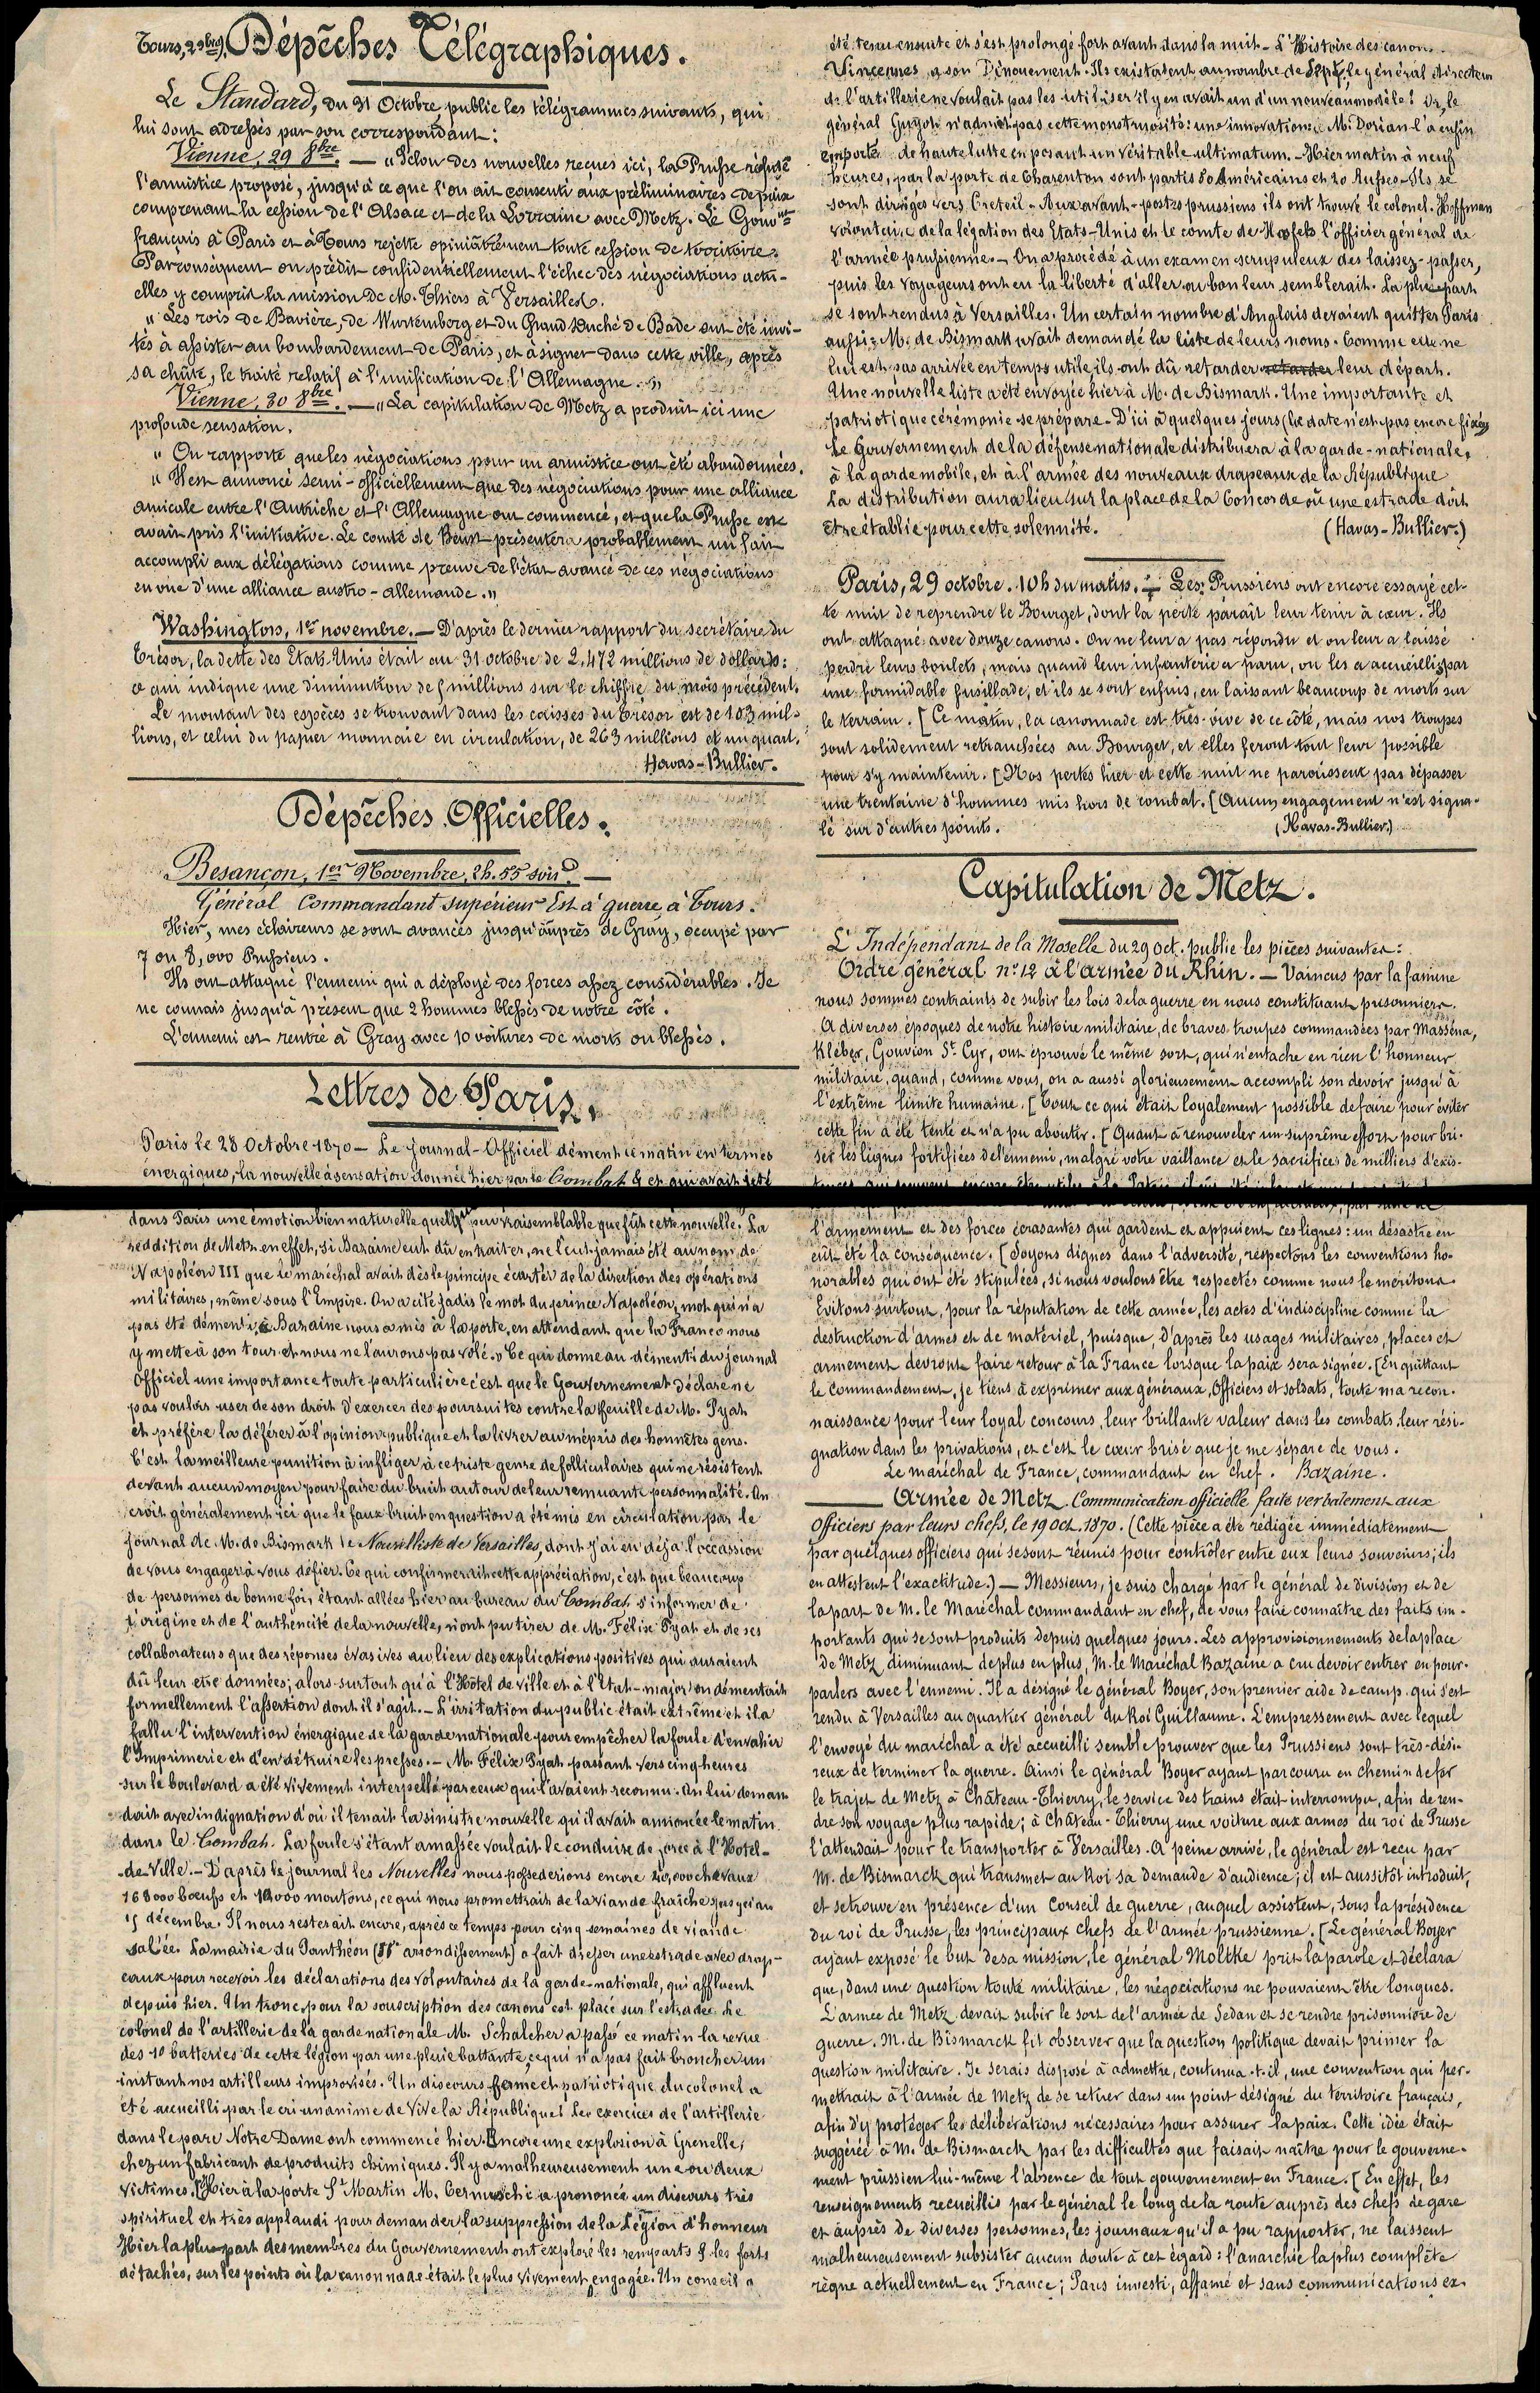 Tours, 2 9bre. Dépêches Télégraphiques.
Le Standard, du 31 Octobre, publie les télégrammes suivants, qui
lui sont adressés par son correspondant :
Vienne, 29 8bre. — "Selon des nouvelles reçues ici, la Prusse refuse
l'armistice proposé, jusqu'à ce que l'on ait consenti aux préliminaires de paix
comprenant la cession de l'Alsace et de la Lorraine avec Metz. Le Gouvnt
français à Paris et à Tours rejette opiniâtrement toute cession de territoire.
Par conséquent on prédit confidentiellement l'échec des négociations actu-
elles y compris la mission de M. Thiers à Versailles.
"Les rois de Bavière, de Wurtemberg et du Grand Duché de Bade ont été invi-
tés à assister au bombardement de Paris, et à signer dans cette ville, après
sa chûte, le traité relatif à l'unification de l'Allemagne."
Vienne, 30 8bre. — "La capitulation de Metz a produit ici une
profonde sensation.
"On rapporte que les négociations pour un armistice ont été abandonnées.
"Il est annoncé semi-officiellement que des négociations pour une alliance
amicale entre l'Autriche et l'Allemagne ont commencé, et que la Prusse en
avait pris l'initiative. Le comte de Beust présentera probablement un fait
accompli aux délégations comme preuve de l'état avancé de ces négociations
en vue d'une alliance austro-allemande."
Washington, 1er novembre. — D'après le dernier rapport du secrétaire du
Trésor, la dette des Etats-Unis était au 31 octobre de 2,472 millions de dollars :
ce qui indique une diminution de 5 millions sur le chiffre du mois précédent.
Le montant des espèces se trouvant dans les caisses du Trésor est de 103 mil-
lions, et celui du papier monnaie en circulation, de 263 millions et un quart.
Havas-Bullier.
Dépêches Officielles.
Besançon, 1er Novembre, 2h.55 soir. —
Général Commandant supérieur Est à guerre, à Tours.
Hier, mes éclaireurs se sont avancés jusqu'auprès de Gray, occupé par
7 ou 8,000 Prussiens.
Ils ont attaqué l'ennemi qui a déployé des forces assez considérables. Je
ne connais jusqu'à présent que 2 hommes blessés de notre côté.
L'ennemi est rentré à Gray avec 10 voitures de morts ou blessés.
Lettres de Paris.
Paris le 28 Octobre 1870 — Le Journal-Officiel dément ce matin en termes
énergiques, la nouvelle à sensation donnée hier par le Combat & et qui avait jeté
dans Paris une émotion bien naturelle quelque peu vraisemblable que fût cette nouvelle. La
reddition de Metz en effet, si Bazaine eut dû en traiter, ne l'eut jamais été au nom de
Napoléon III que le maréchal avait dès le principe écarté de la direction des opérations
militaires, même sous l'Empire. On a cité jadis le mot du prince Napoléon, mot qui n'a
pas été démenti, "Bazaine nous a mis à la porte, en attendant que la France nous
y mette à son tour et nous ne l'aurons pas volé." Ce qui donne au démenti du journal
Officiel une importance toute particulière c'est que le Gouvernement déclare ne
pas vouloir user de son droit d'exercer des poursuites contre la feuille de M. Pyat
et préfère la déférer à l'opinion publique et la livrer au mépris des honnêtes gens.
C'est la meilleure punition à infliger à ce triste genre de folliculaires qui ne résistent
devant aucun moyen pour faire du bruit autour de leur remuante personnalité. On
croit généralement ici que le faux bruit en question a été mis en circulation par le
journal de M. de Bismark le Nouvelliste de Versailles, dont j'ai eu déjà l'occasion
de vous engager à vous défier. Ce qui confirmerait cette appréciation, c'est que beaucoup
de personnes de bonne foi, étant allées hier au bureau du Combat s'informer de
l'origine et de l'authencité de la nouvelle, n'ont pu tirer de M. Félix Pyat et de ses
collaborateurs que des réponses évasives au lieu des explications positives qui auraient
dû leur être données; alors surtout qu'à l'Hôtel de Ville et à l'Etat-major on démentait
formellement l'assertion dont il s'agit. — L'irritation du public était extrême et il a
fallu l'intervention énergique de la garde nationale pour empêcher la foule d'envahir
l'imprimerie et d'en détruire les presses. — M. Félix Pyat passant vers cinq heures
sur le boulevard a été vivement interpellé par ceux qui l'avaient reconnu. On lui deman
dait avec indignation d'où il tenait la sinistre nouvelle qu'il avait annoncée le matin
dans le Combat. La foule s'étant amassée voulait le conduire de force à l'Hotel-
de-Ville. — D'après le journal les Nouvelles nous possederions encore 40,000 chevaux
168000 bœufs et 19000 moutons, ce qui nous promettrait de la viande fraîche jusqu'au
15 décembre. Il nous resterait encore, après ce temps pour cinq semaines de viande
salée. La mairie du Panthéon arrondissement) a fait dresser une estrade avec drap-
eaux pour recevoir les déclarations des volontaires de la garde-nationale, qui affluent
depuis hier. Un tronc pour la souscription des canons est placé sur l'estrade. Le
colonel de l'artillerie de la garde nationale M. Schalcher a passé ce matin la revue
des 10 batteries de cette légion par une pluie battante, ce qui n'a pas fait broncher un
instant nos artilleurs improvisés. Un discours ferme et patriotique du colonel a
été accueilli par le cri unanime de Vive la République! Les exercices de l'artillerie
dans le parc Notre Dame ont commencé hier. Encore une explosion à Grenelle,
chez un fabricant de produits chimiques. Il y a malheureusement une ou deux
victimes. [Hier à la porte St Martin M. Cernuschi a prononcé un discours très
spirituel et très applaudi pour demander la suppression de la Légion d'honneur
Hier la plupart des membres du Gouvernement ont exploré les remparts & les forts
détachés, sur les points où la canonnade était le plus vivement engagée. Un conseil a
été tenu ensuite et s'est prolongé fort avant dans la nuit — L'Histoire des canons
Vincennes a son Dénouement. Ils existaient au nombre de sept, le général directeur
de l'artillerie ne voulait pas les utiliser il y en avait un d'un nouveau modèle! Or, le
général Guyot n'admet pas cette monstruosité: une innovation. M. Dorian l'a enfin
emporté de haute lutte en posant un véritable ultimatum. — Hier matin à neuf
heures, par la porte de Charenton sont partis 80 Américains et 20 Russes — Ils se
sont dirigés vers Creteil — Aux avant-postes prussiens ils ont trouvé le colonel Hoffman
volontaire de la légation des Etats-Unis et le comte de l'officier général de
l'armée prussienne. — On a procédé à un examen scrupuleux des laissez-passer,
puis les voyageurs ont eu la liberté d'aller où bon leur semblerait. La plupart
se sont rendus à Versailles. Un certain nombre d'Anglais devaient quitter Paris
aussi; M. de Bismark avait demandé la liste de leurs noms. Comme elle ne
lui est pas arrivée en temps utile, ils ont dû retarder retarder leur départ.
Une nouvelle liste a été envoyée hier à M. de Bismark. Une importante et
patriotique cérémonie se prépare. D'ici à quelques jours (la date n'est pas encore fixée)
Le Gouvernement de la défense nationale distribuera à la garde-nationale,
à la garde mobile, et à l'armée des nouveaux drapeaux de la République
La distribution aura lieu sur la place de la Concorde où une estrade doit
être établie pour cette solennité. (Havas-Bullier.)
Paris, 29 octobre. 10h du matin. — Les Prussiens ont encore essayé cet-
te nuit de reprendre le Bourget, dont la perte paraît leur tenir à cœur. Ils
ont attaqué avec douze canons. On ne leur a pas répondu et on leur a laissé
perdre leurs boulets, mais quand leur infanterie a paru, on les a accueillis par
une formidable fusillade, et ils se sont enfuis, en laissant beaucoup de morts sur
le terrain. [Ce matin, la canonnade est très-vive de ce côté, mais nos troupes
sont solidement retranchées au Bourget, et elles feront tout leur possible
pour s'y maintenir. [Nos pertes hier et cette nuit ne paraissent pas dépasser
une trentaine d'hommes mis hors de combat. [Aucun engagement n'est signa-
lé sur d'autres points. (Havas-Bullier.)
Capitulation de Metz.
L'Indépendant de la Moselle du 29 oct. publie les pièces suivantes :
Ordre général n° 12 à l'armée du Rhin. — Vaincus par la famine
nous sommes contraints de subir les lois de la guerre en nous constituant prisonniers.
A diverses époques de notre histoire militaire, de braves troupes commandées par Masséna,
Kléber, Gouvion St. Cyr, ont éprouvé le même sort, qui n'entache en rien l'honneur
militaire, quand, comme vous, on a aussi glorieusement accompli son devoir jusqu'à
l'extrême limite humaine. [Tout ce qui était loyalement possible de faire pour éviter
cette fin a été tenté et n'a pu aboutir. [Quant à renouveler un suprême effort pour bri-
ser les lignes fortifiées de l'ennemi, malgré votre vaillance et le sacrifice de milliers d'exis-
tences qui peuvent encore être utiles à la Patrie, il eût été
l'armement et des forces écrasantes qui gardent et appuient ces lignes : un désastre en
eût été la conséquence. [Soyons dignes dans l'adversité, respectons les conventions ho-
norables qui ont été stipulées, si nous voulons être respectés comme nous le méritons.
Evitons surtout, pour la réputation de cette armée, les actes d'indiscipline comme la
destruction d'armes et de matériel, puisque, d'après les usages militaires, places et
armement devront faire retour à la France lorsque la paix sera signée. [En quittant
le commandement, je tiens à exprimer aux généraux, Officiers et soldats, toute ma recon-
naissance pour leur loyal concours, leur brillante valeur dans les combats, leur rési-
gnation dans les privations, et c'est le cœur brisé que je me sépare de vous.
Le maréchal de France, commandant en chef. Bazaine.
Armée de Metz. Communication officielle faite verbalement aux
Officiers par leurs chefs, le 19 oct. 1870. (Cette pièce a été rédigée immédiatement
par quelques officiers qui se sont réunis pour contrôler entre eux leurs souvenirs; ils
en attestent l'exactitude.) — Messieurs, je suis chargé par le général de division et de
la part de M. le Maréchal commandant en chef, de vous faire connaître des faits im-
portants qui se sont produits depuis quelques jours. Les approvisionnements de la place
de Metz diminuant de plus en plus, M. le Maréchal Bazaine a cru devoir entrer en pour-
parlers avec l'ennemi. Il a désigné le général Boyer, son premier aide de camp, qui s'est
rendu à Versailles au quartier général du Roi Guillaume. L'empressement avec lequel
l'envoyé du maréchal a été accueilli semble prouver que les Prussiens sont très-dési-
reux de terminer la guerre. Ainsi le général Boyer ayant parcouru en chemin de fer
le trajet de Metz à Château-Thierry, le service des trains était interrompu, afin de ren-
dre son voyage plus rapide; à Château-Thierry une voiture aux armes du roi de Prusse
l'attendait pour le transporter à Versailles. A peine arrivé, le général est reçu par
M. de Bismarck qui transmet au Roi sa demande d'audience; il est aussitôt introduit,
et se trouve en présence d'un Conseil de guerre, auquel assistent, sous la présidence
du roi de Prusse, les principaux chefs de l'armée prussienne. [Le général Boyer
ayant exposé le but de sa mission, le général Moltke prit la parole et déclara
que, dans une question toute militaire, les négociations ne pouvaient être longues.
L'armée de Metz devait subir le sort de l'armée de Sedan et se rendre prisonnière de
guerre. M. de Bismarck fit observer que la question politique devait primer la
question militaire. Je serais disposé à admettre, continua-t-il, une convention qui per-
mettrait à l'armée de Metz de se retirer dans un point désigné du territoire français,
afin d'y protéger les délibérations nécessaires pour assurer la paix. Cette idée était
suggérée à M. de Bismarck par les difficultés que faisait naître pour le gouverne-
ment prussien lui-même l'absence de tout gouvernement en France. [En effet, les
renseignements recueillis par le général le long de la route auprès des chefs de gare
et auprès de diverses personnes, les journaux qu'il a pu rapporter, ne laissent
malheureusement subsister aucun doute à cet égard : l'anarchie la plus complète
règne actuellement en France; Paris investi, affamé et sans communications ex-